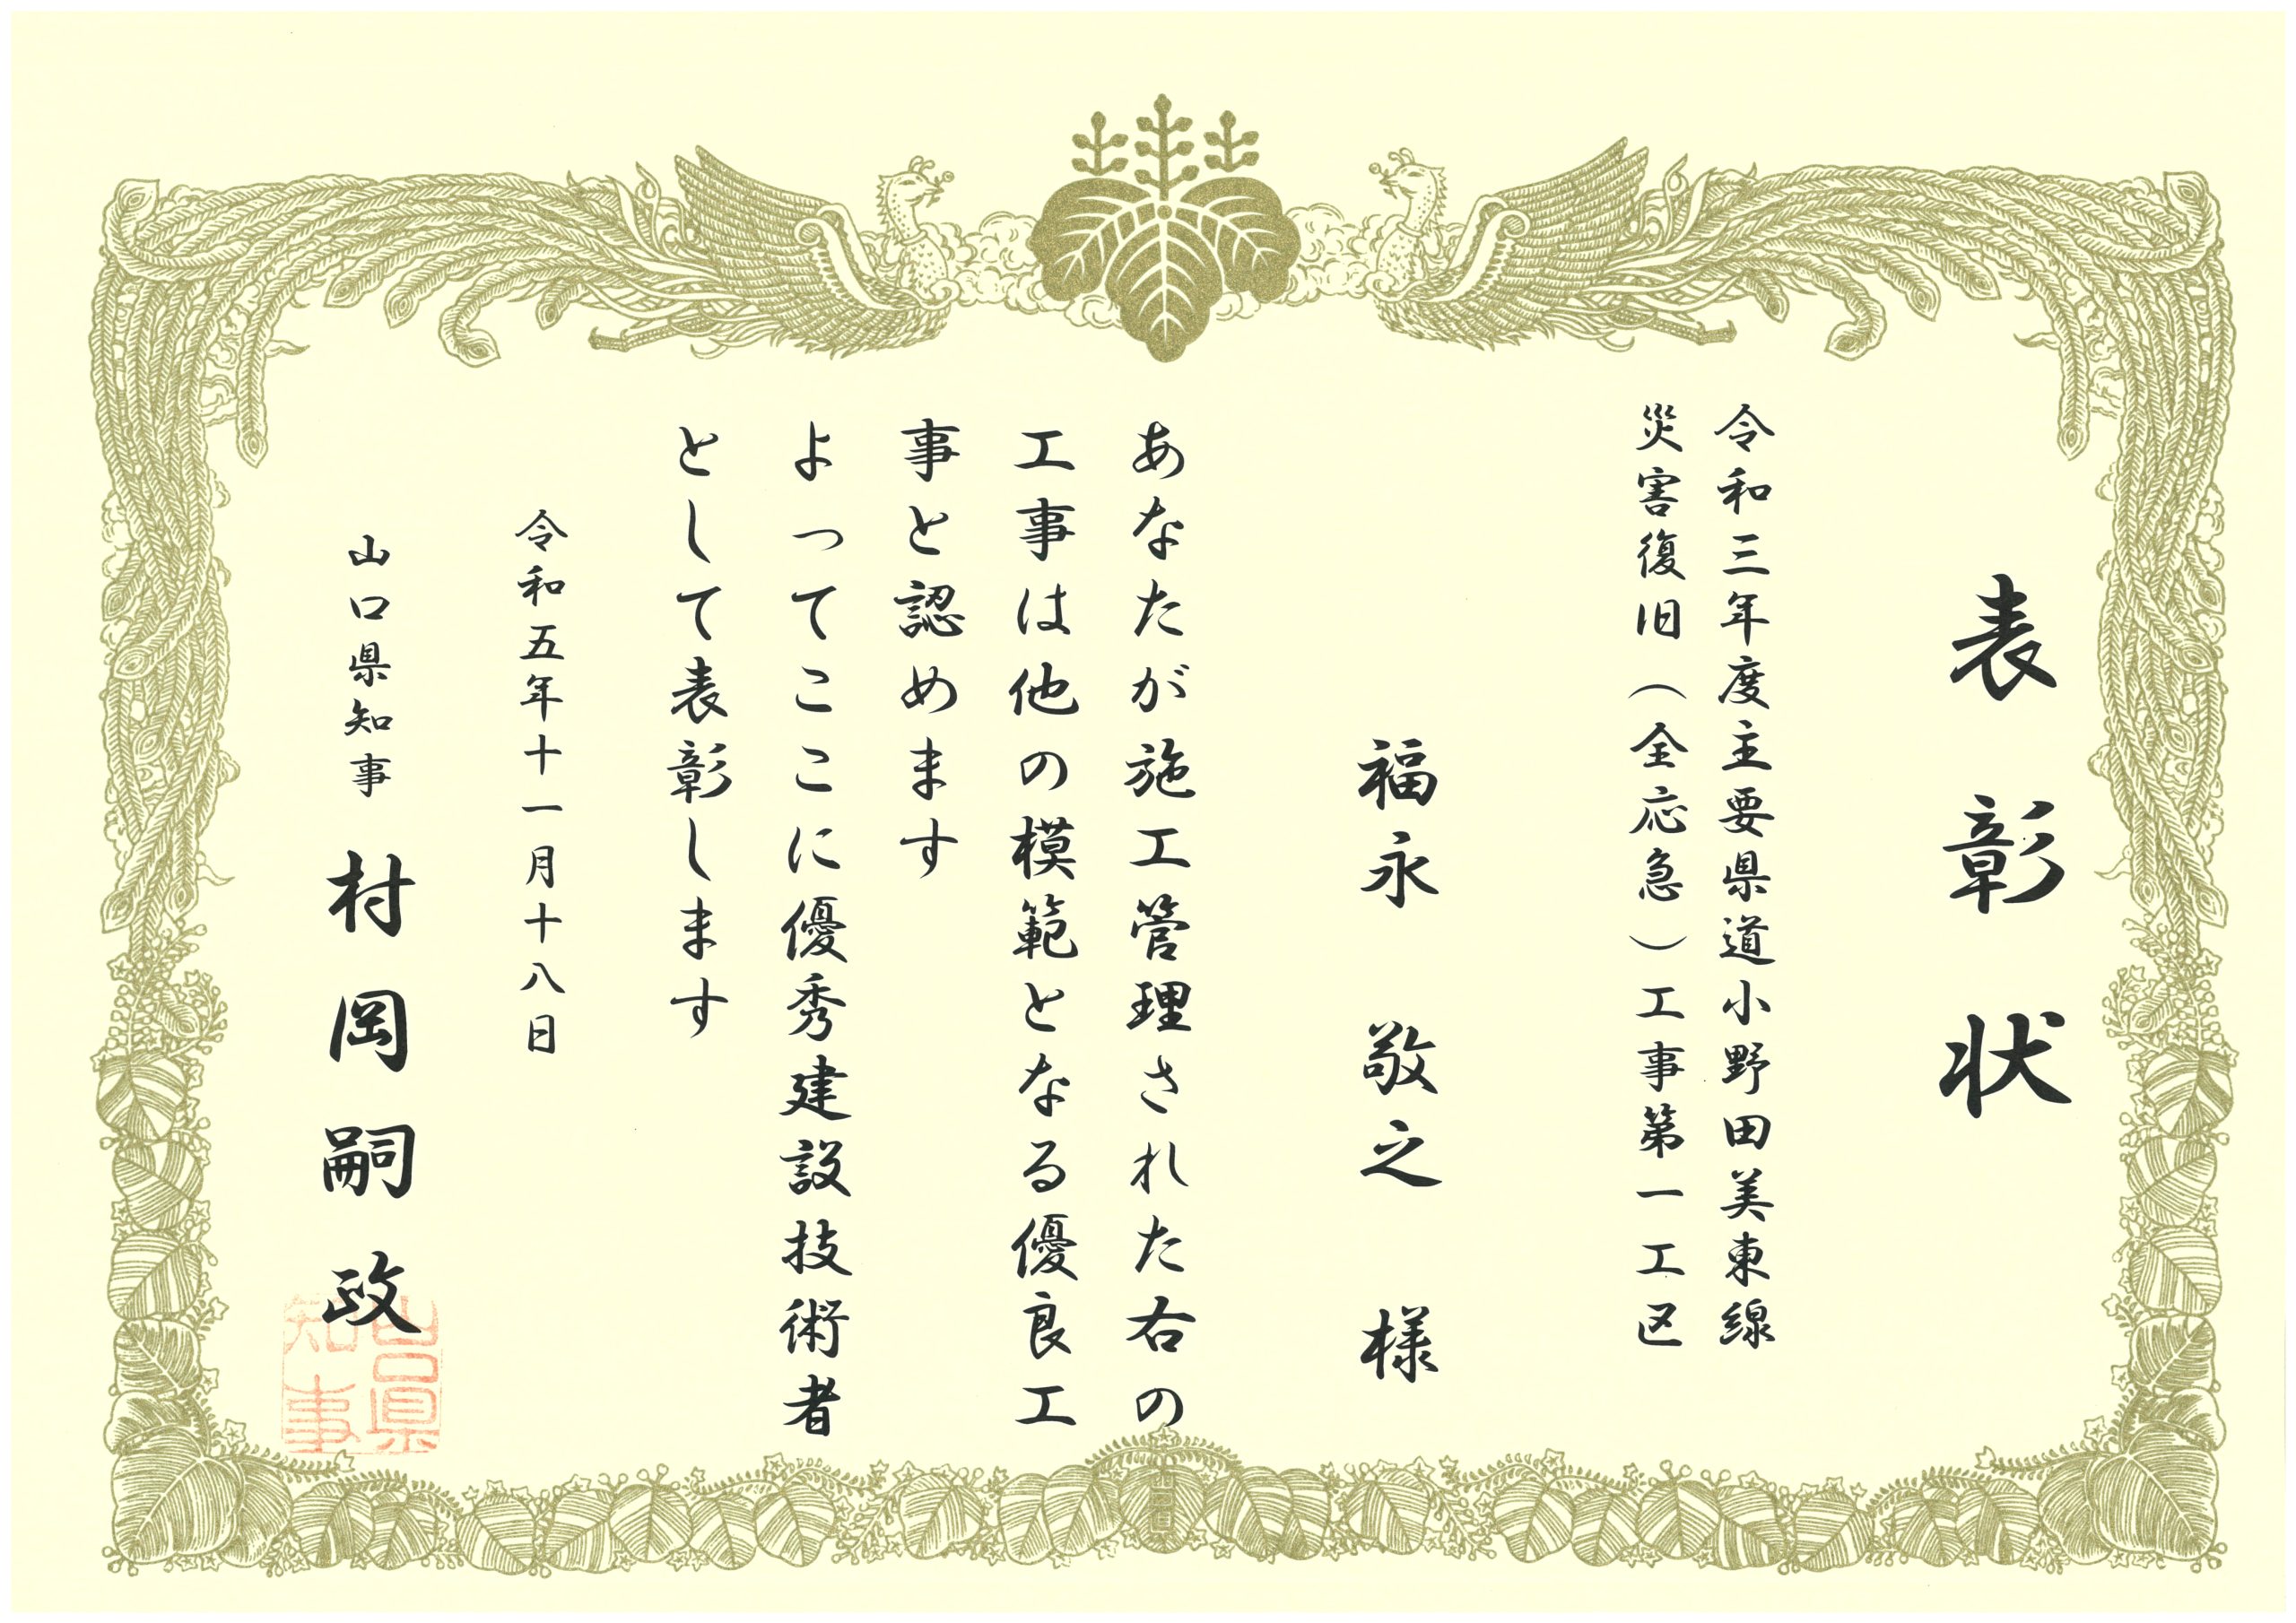 表彰状
令和三年度主要県道小野田美東線
災害復旧（全応急）工事第一工区
福永 敬之 様
あなたが施工管理された右の
工事は他の模範となる優良工
事と認めます
よってここに優秀建設技術者
として表彰します
令和五年十一月十八日
山口県知事 村岡嗣政
山口県
知事